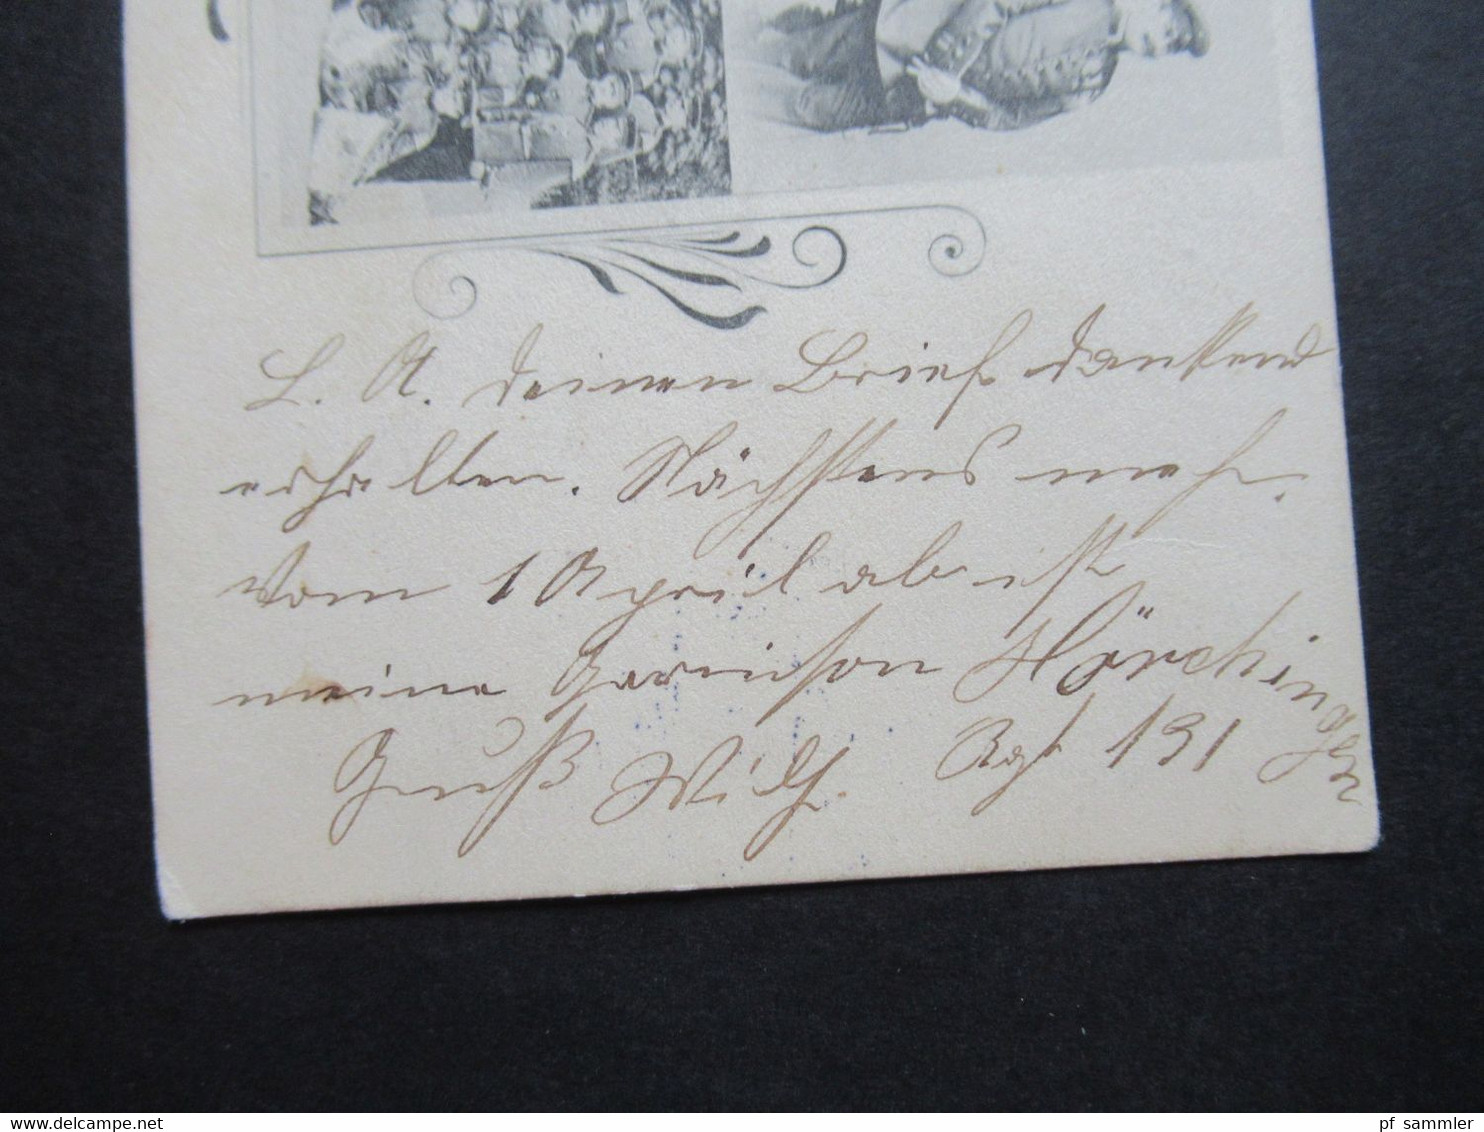 L. A. deinen Brief dankend
erhalten. Nächstens mehr.
Vom 1 April ab ist
meine Garnison Mörchingen
Gruß Wilh. Rgt 131
pf sammler
www.delcampe.net